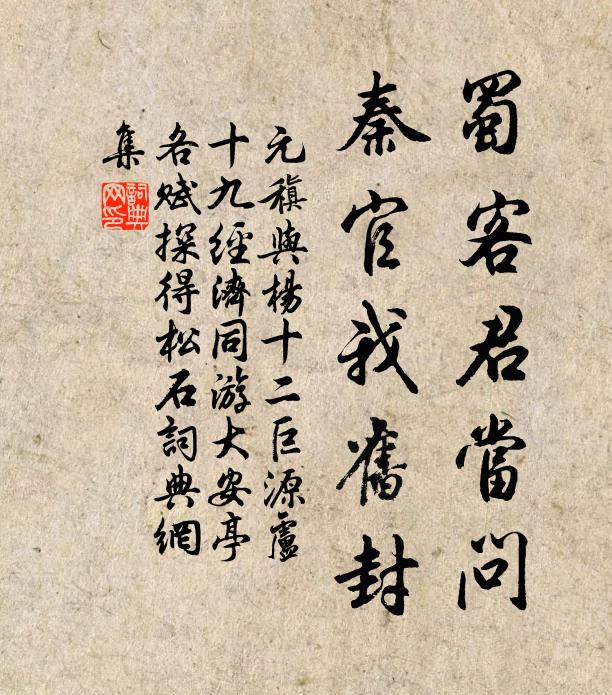 蜀客君當問
秦官我舊封
元稹與楊十二巨源盧
十九經濟同游大安亭
各賦探得松石詞典網
集
詞典
网印